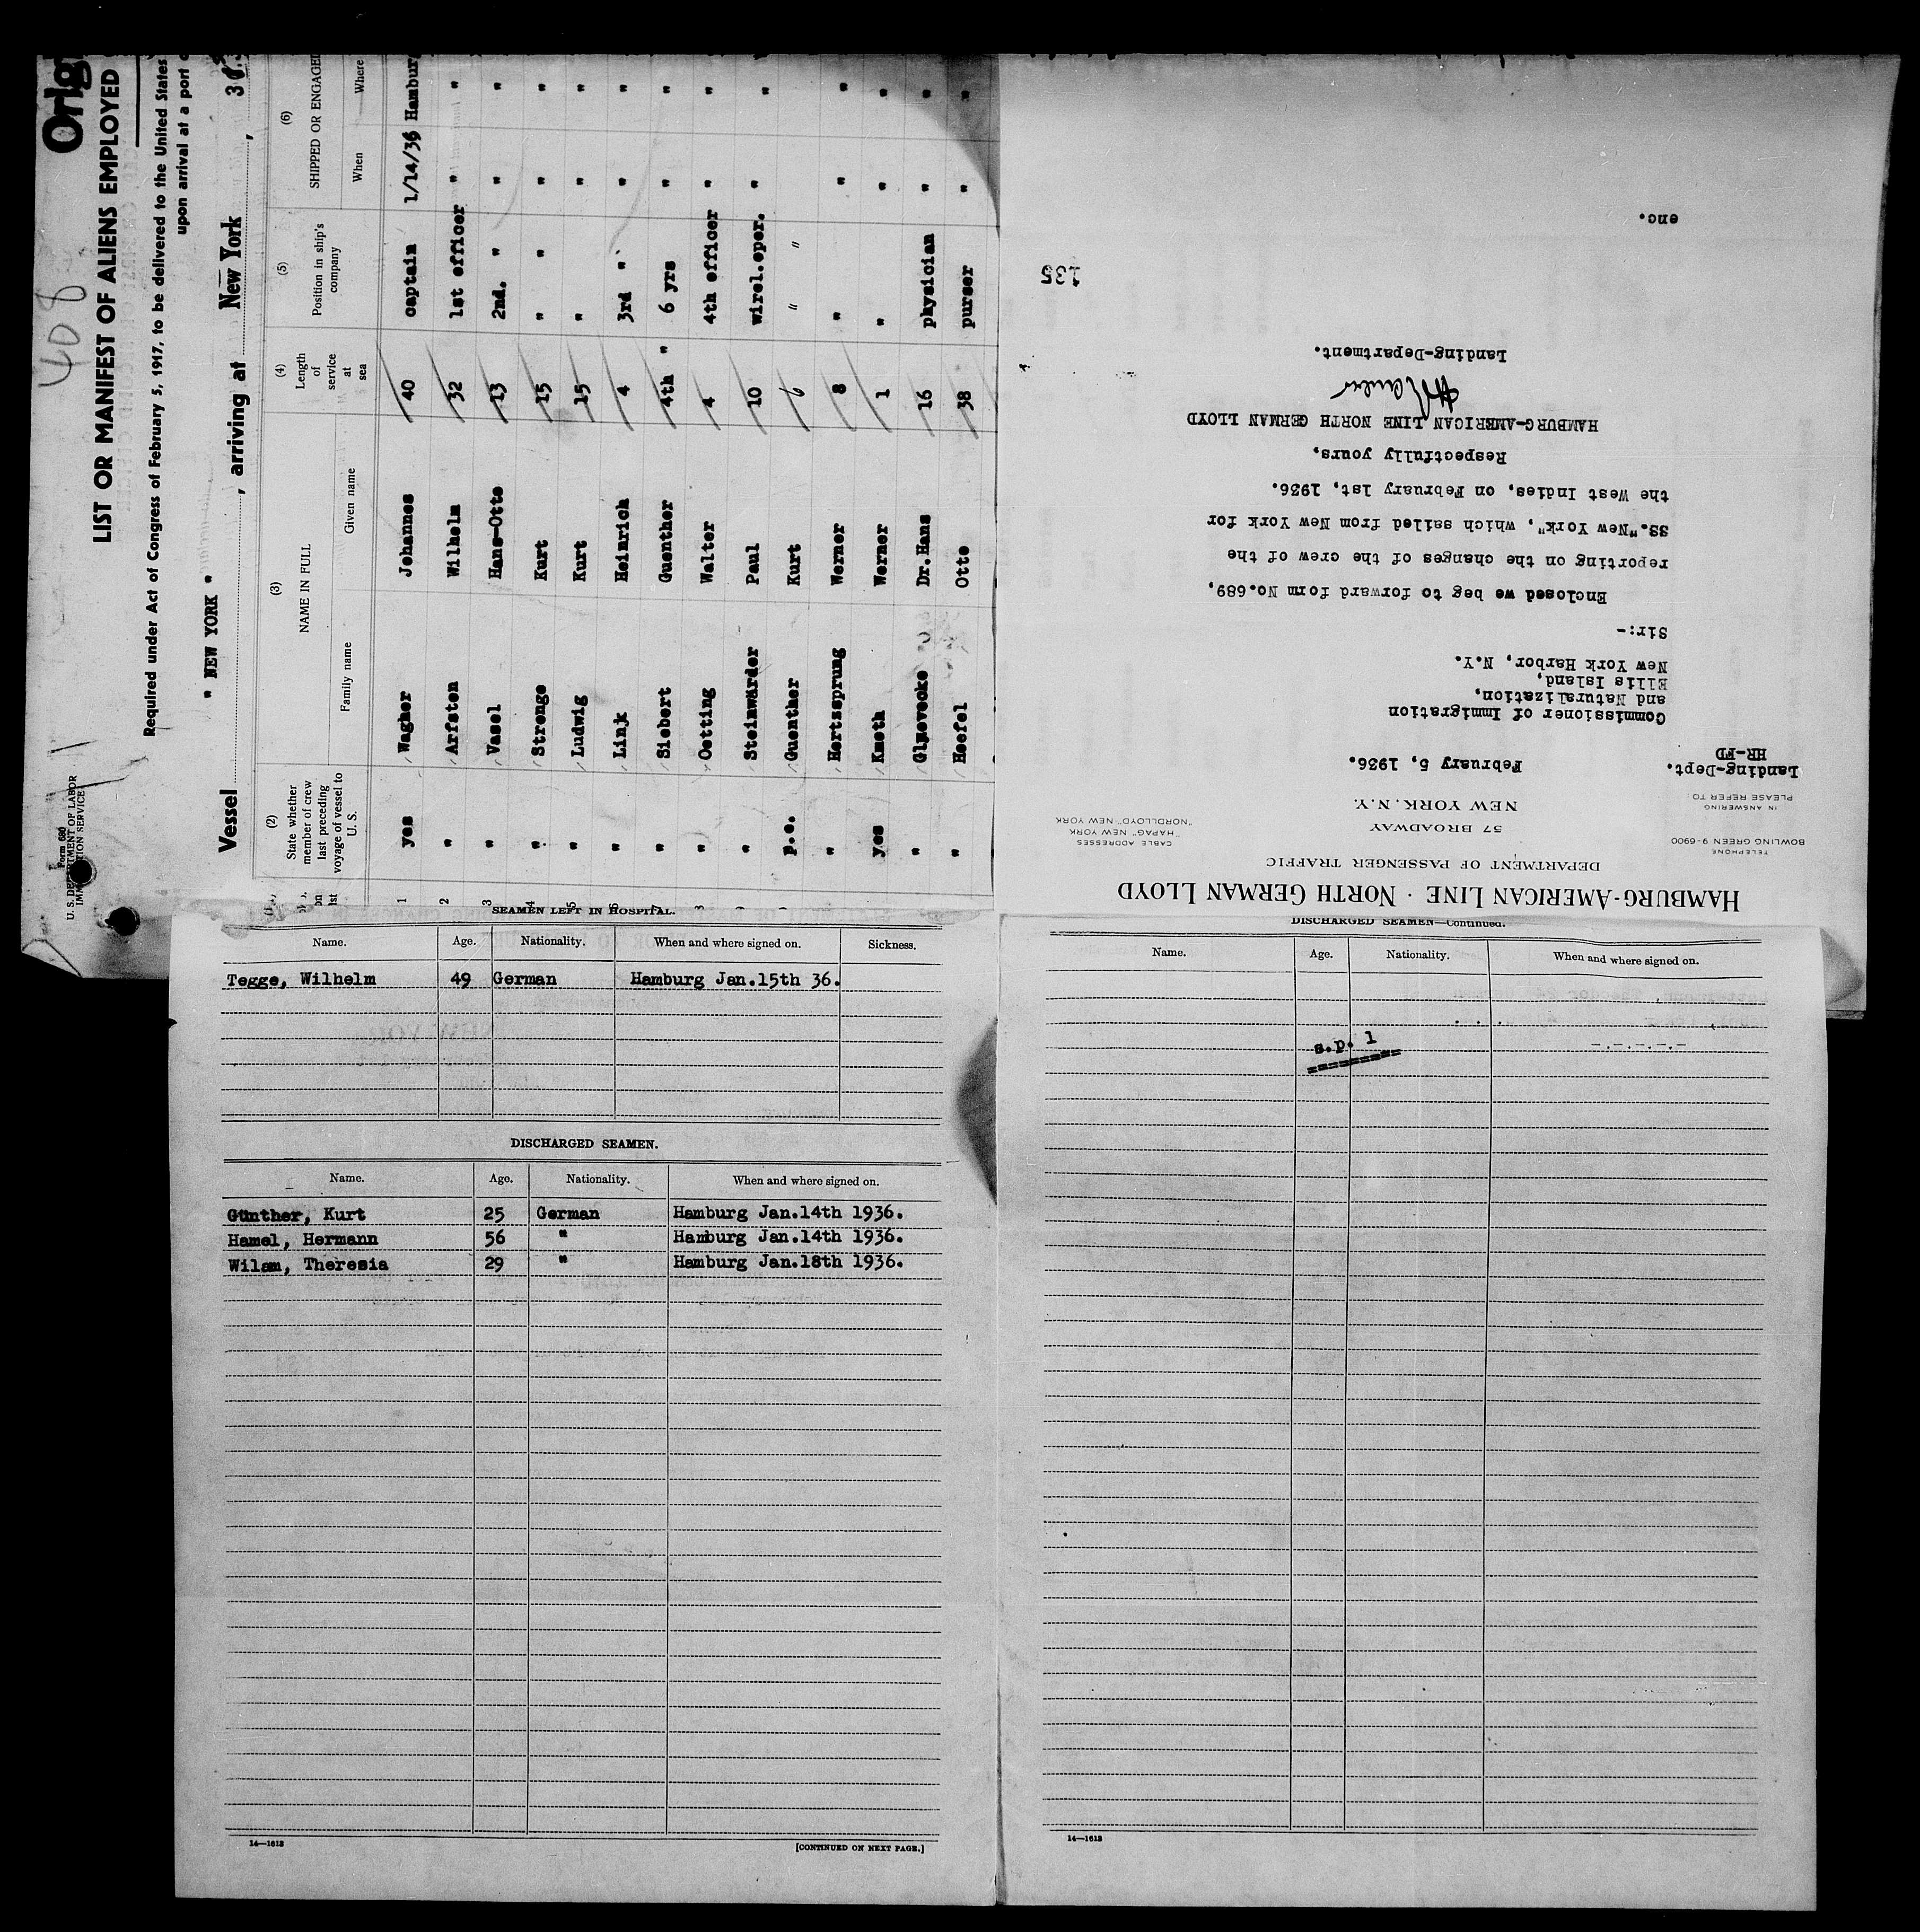 Orig
408
LIST OR MANIFEST OF ALIENS EMPLOYED
Required under Act of Congress of February 5, 1917, to be delivered to the United States
upon arrival at a port
Form 680
U. S. DEPARTMENT OF LABOR
IMMIGRATION SERVICE
Vessel " NEW YORK " , arriving at New York ,
(2) State whether member of crew last preceding voyage of vessel to U. S.
(3) NAME IN FULL
Family name Given name
(4) Length of service at sea
(5) Position in ship's company
(6) SHIPPED OR ENGAGED
When Where
1 yes Wagner Johannes 40 captain 1/14/36 Hamburg
2 " Arfsten Wilhelm 32 1st officer " "
3 " Vasel Hans-Otto 13 2nd. " " "
4 " Strenge Kurt 15 " " " "
5 " Ludwig Kurt 15 " " "
6 " Link Heinrich 4 3rd " " "
7 " Siebert Guenther 4th " 6 yrs " "
8 " Oetting Walter 4 4th officer " "
" Steinwärder Paul 10 wirel.oper. " "
p.o. Guenther Kurt 6 " "
" Hertzsprung Werner 8 " " "
yes Kmoth Werner 1 " " "
" Glavecke Dr.Hans 16 physician " "
" Hoefel Otto 38 purser " "
HAMBURG-AMERICAN LINE · NORTH GERMAN LLOYD
DEPARTMENT OF PASSENGER TRAFFIC
57 BROADWAY
NEW YORK, N.Y.
TELEPHONE
BOWLING GREEN 9-6900
IN ANSWERING
PLEASE REFER TO:
Landing-Dept.
HR-FD
CABLE ADDRESSES
"HAPAG" NEW YORK
"NORDLLOYD" NEW YORK
February 5, 1936.
Commissioner of Immigration
and Naturalization,
Ellis Island,
New York Harbor, N.Y.
Sir:-
Enclosed we beg to forward form No.689,
reporting on the changes of the crew of the
SS."New York", which sailed from New York for
the West Indies, on February 1st, 1936.
Respectfully yours,
HAMBURG-AMERICAN LINE NORTH GERMAN LLOYD
Landing-Department.
135
enc.
SEAMEN LEFT IN HOSPITAL.
Name. Age. Nationality. When and where signed on. Sickness.
Tegge, Wilhelm 49 German Hamburg Jan.15th 36.
DISCHARGED SEAMEN.
Name. Age. Nationality. When and where signed on.
Günther, Kurt 25 German Hamburg Jan.14th 1936.
Hamel, Hermann 56 " Hamburg Jan.14th 1936.
Wilam, Theresia 29 " Hamburg Jan.18th 1936.
14—1613
[CONTINUED ON NEXT PAGE.]
DISCHARGED SEAMEN—Continued.
Name. Age. Nationality. When and where signed on.
s.p. 1
-.-.-.-.-
14—1613